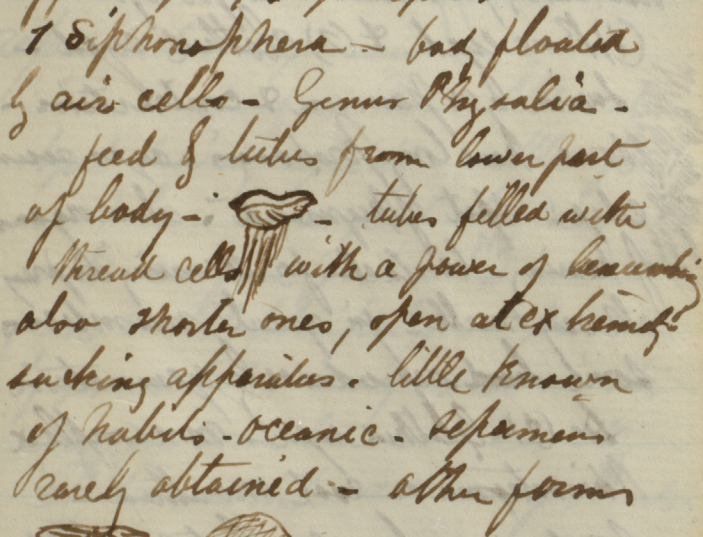 7 Siphonophera - body floated
by air cells - Genus Physalia -
feed by tubes from lower part
of body - - tubes filled with
thread cells with a power of benumbing
also shorter ones, open at extremity
sucking apparatus. little known
of habits - oceanic - specimens
rarely obtained - other forms